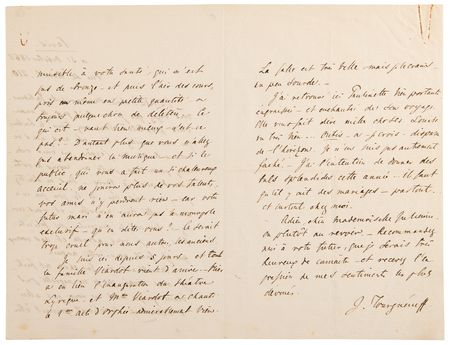 nuisible à votre santé, qui n'est
pas de bronze. et puis l'air des cours,
pris même en petite quantité a
toujours quelque chose de délétère, ce
qui est
pas? D'autant plus que vous n'allez
pas abandonner la musique – et si le
public, qui vous a fait un si chaleureux
acceuil ne jouira plus de vos talents,
vos amis n'y perdront rien – car votre
futur mari n'en aura pas le monopole
exclusif – qu'en dites vous? Ce serait
trop cruel pour nous autres, les anciens.
Je suis ici depuis 5 jours – et toute
la famille Viardot vient d'arriver. Hier
a eu lieu l'inauguration du théâtre
Lyrique et Mme Viardot a chanté
le 1er acte d'Orphée admirablement bien.
La salle est très belle – mais je la crois
un peu sourde.
J'ai retrouvé ici Paulinette bien portante
– et enchantée de son voyage.
Elle vous fait dire mille choses
à
de l'horizon. Je n'en suis pas autrement
fâché – J'ai l'intention de donner des
bals splendides cette année. Il faut
qu'il y ait des mariages – partout
et surtout chez moi.
Adieu chère mademoiselle
ou plutôt au revoir – Recommandez
moi à votre futur, que je serais très
heureux de connaître – et recevez l'ex-
pression de mes sentiments les plus
dévoués.
J. Tourguéneff